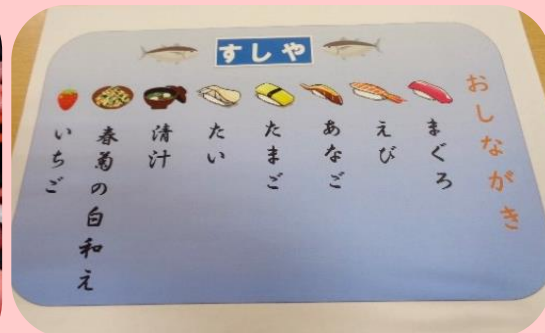 すしや
おしながき
まぐろ
えび
あなご
たまご
たい
清汁
春菊の白和え
いちご